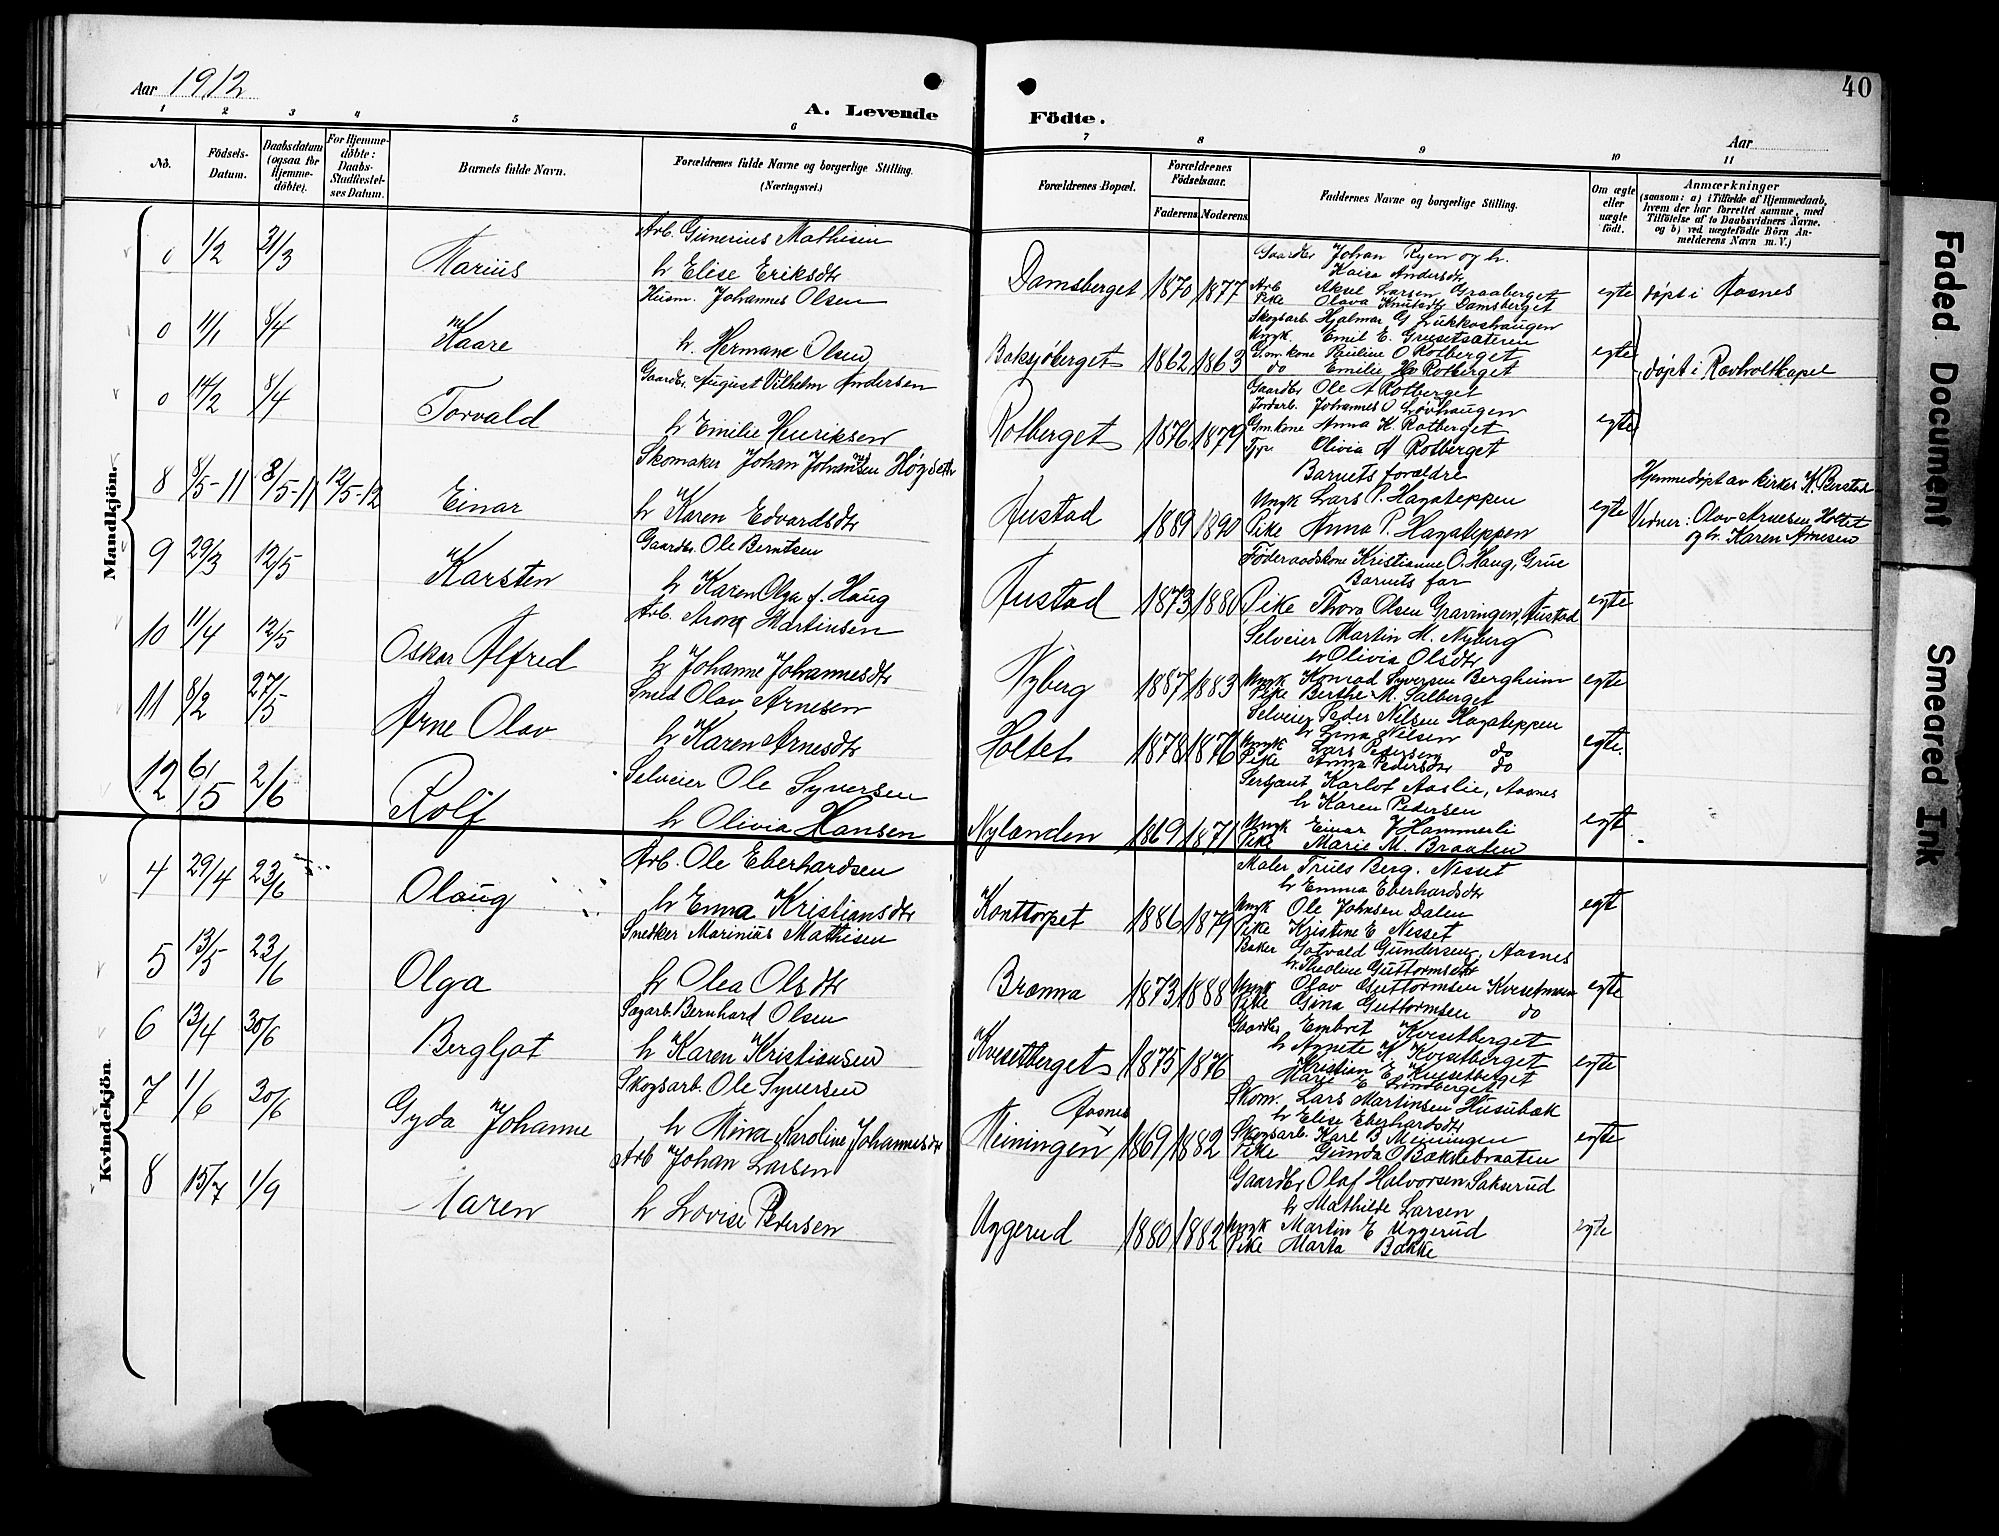 Aar 1912
40
A. Levende Födte.
Aar
1 2 3 4 5 6 7 8 9 10 11
Nö.
Födsels-Datum.
Daabsdatum (ogsaa for Hjemme-döbte).
For Hjemme-döbte: Daabs-Stadfæstel-ses Datum.
Barnets fulde Navn.
Forældrenes fulde Navne og borgerlige Stilling. (Næringsvei.)
Forældrenes Bopæl.
Forældrenes Födselsaar.
Faderens. Moderens.
Faddernes Navne og borgerlige Stilling.
Om ægte eller uægte født.
Anmærkninger
(saasom: a) i Tilfælde af Hjemmedaab,
hvem der har forrettet samme, med
Tilföielse af to Daabsvidners Navne.
og b) ved uægtefödte Börn An-
melderens Navn m. V.)
Mandkjön.
0 1/2 21/3 Marius
Arb. Gunerius Mathisen
h Elise Eriksdtr
Damsberget 1870 1877
Gaardbr Johan Ryen og h.
Kaisa Andersdtr
Arb Aksel Larsen Graaberget
Pike Olava Knutsdtr Damsberget
egte døpt i Aasnes
0 11/1 8/4 Kaare
Husm. Johannes Olsen
h. Hermane Olsen
Baksjøberget 1862 1863
Skogsarb. Hjalmar G Lukkashaugen
Ungk. Emil E. Grusetsæteren
Gm. kone Pauline O Rotberget
do Emilie H. Rotberget
egte døpt i Ravholtkapel
0 14/2 8/4 Torvald
Gaardbr. August Vilhelm Andersen
h Emilie Henriksen
Rotberget 1876 1879
Gaardbr Ole A Rotberget
Jordarb. Johannes O Løvhaugen
Gm. kone Anna K. Rotberget
Pype Olivia A Rotberget
egte
8 8/5-11 8/5-11 12/5-12 Einar
Skomaker Johan Johansen Høgset
h Karen Edvardsdtr
Austad 1889 1890
Barnets forældre
Ungk Lars P. Hagateppen
Pike Anna P. Hagateppen
egte
Hjemmedøpt av kirkes. K. Berstad
Vidner: Olav Arnesen Holtet
og h. Karen Arnesen
9 29/3 12/5 Karsten
Gaardbr. Ole Berntsen
h Karen Olga f. Haug
Austad 1873 1880
Føderaadskone Kristianne O. Haug, Grue
Barnets far
Pike Thora Olsen Gravingen, Austad
egte
10 11/4 12/5 Oskar Alfred
Arb. Aron Martinsen
h Johanne Johannesdtr
Nyberg 1887 1883
Selveier Martin M. Nyberg
h Olivia Olsdtr
Ungk Konrad Syversen Bergheim
Pike Berthe M. Salberget
egte
11 8/2 27/5 Arne Olav
Smed Olav Arnesen
h Karen Arnesdtr
Holtet 1878 1876
Selveier Peder Nilsen Hagateppen
h Lina Nilsen
Ungk Lars Pedersen do
Pike Anna Pedersdtr do
egte.
12 6/15 2/6 Rolf
Selveier Ole Syversen
h Olivia Hansen
Nylanden 1869 1871
Sersjant Karlot Aaslie, Aasnes
h Karen Pedersen
Ungk Einar J Hammerli
Pike Marie M. Braaten
egt
Kvindekjön.
4 29/4 23/6 Olaug
Arb. Ole Eberhardsen
h Enna Kristiansdtr
Konttorpet 1886 1879
Maler Truls Berg. Nesset
h Emma Eberhardsdtr
Ungk Ole Johnsen Dalen
Pike Kristine E Nesset
egt
5 13/5 23/6 Olga
Snedker Marinius Mathisen
h Olea Olsdtr
Brænna 1873 1888
Baker Gotvald Gundersen, Aasnes
h Theoline Guttormsdtr
Ungk Olav Guttormsen Kvesetmoen
Pike Gina Guttormsen do
egte
6 13/4 30/6 Bergljot
Sagarb Bernhard Olsen
h Karen Kristiansen
Kvesetberget 1875 1876
Gaardbr Embret Kvesetberget
h Agnete K Kvesetberget
Kristian E Kvesetberget
Marie E Lindberget
egte
7 1/6 30/6 Gyda Johanne
Skogsarb. Ole Syversen
h Mina Karoline Johannesdtr
Aasnes
Meiningen 1869 1882
Skom. Lars Martinsen Husubæk
h Elise Eberhardsdtr
Skogsarb. Karl B Meiningen
Pike Gunda O Bakkebraaten
egte
8 15/7 1/9 Maren
Arb Johan Larsen
h Lovise Pedersen
Uggerud 1880 1882
Gaardbr Olaf Halvorsen Sakserud
h Mathilde Larsen
Ungk Martin E Uggerud
Pike Marta Bakke
egte
Faded Document
Smeared Ink